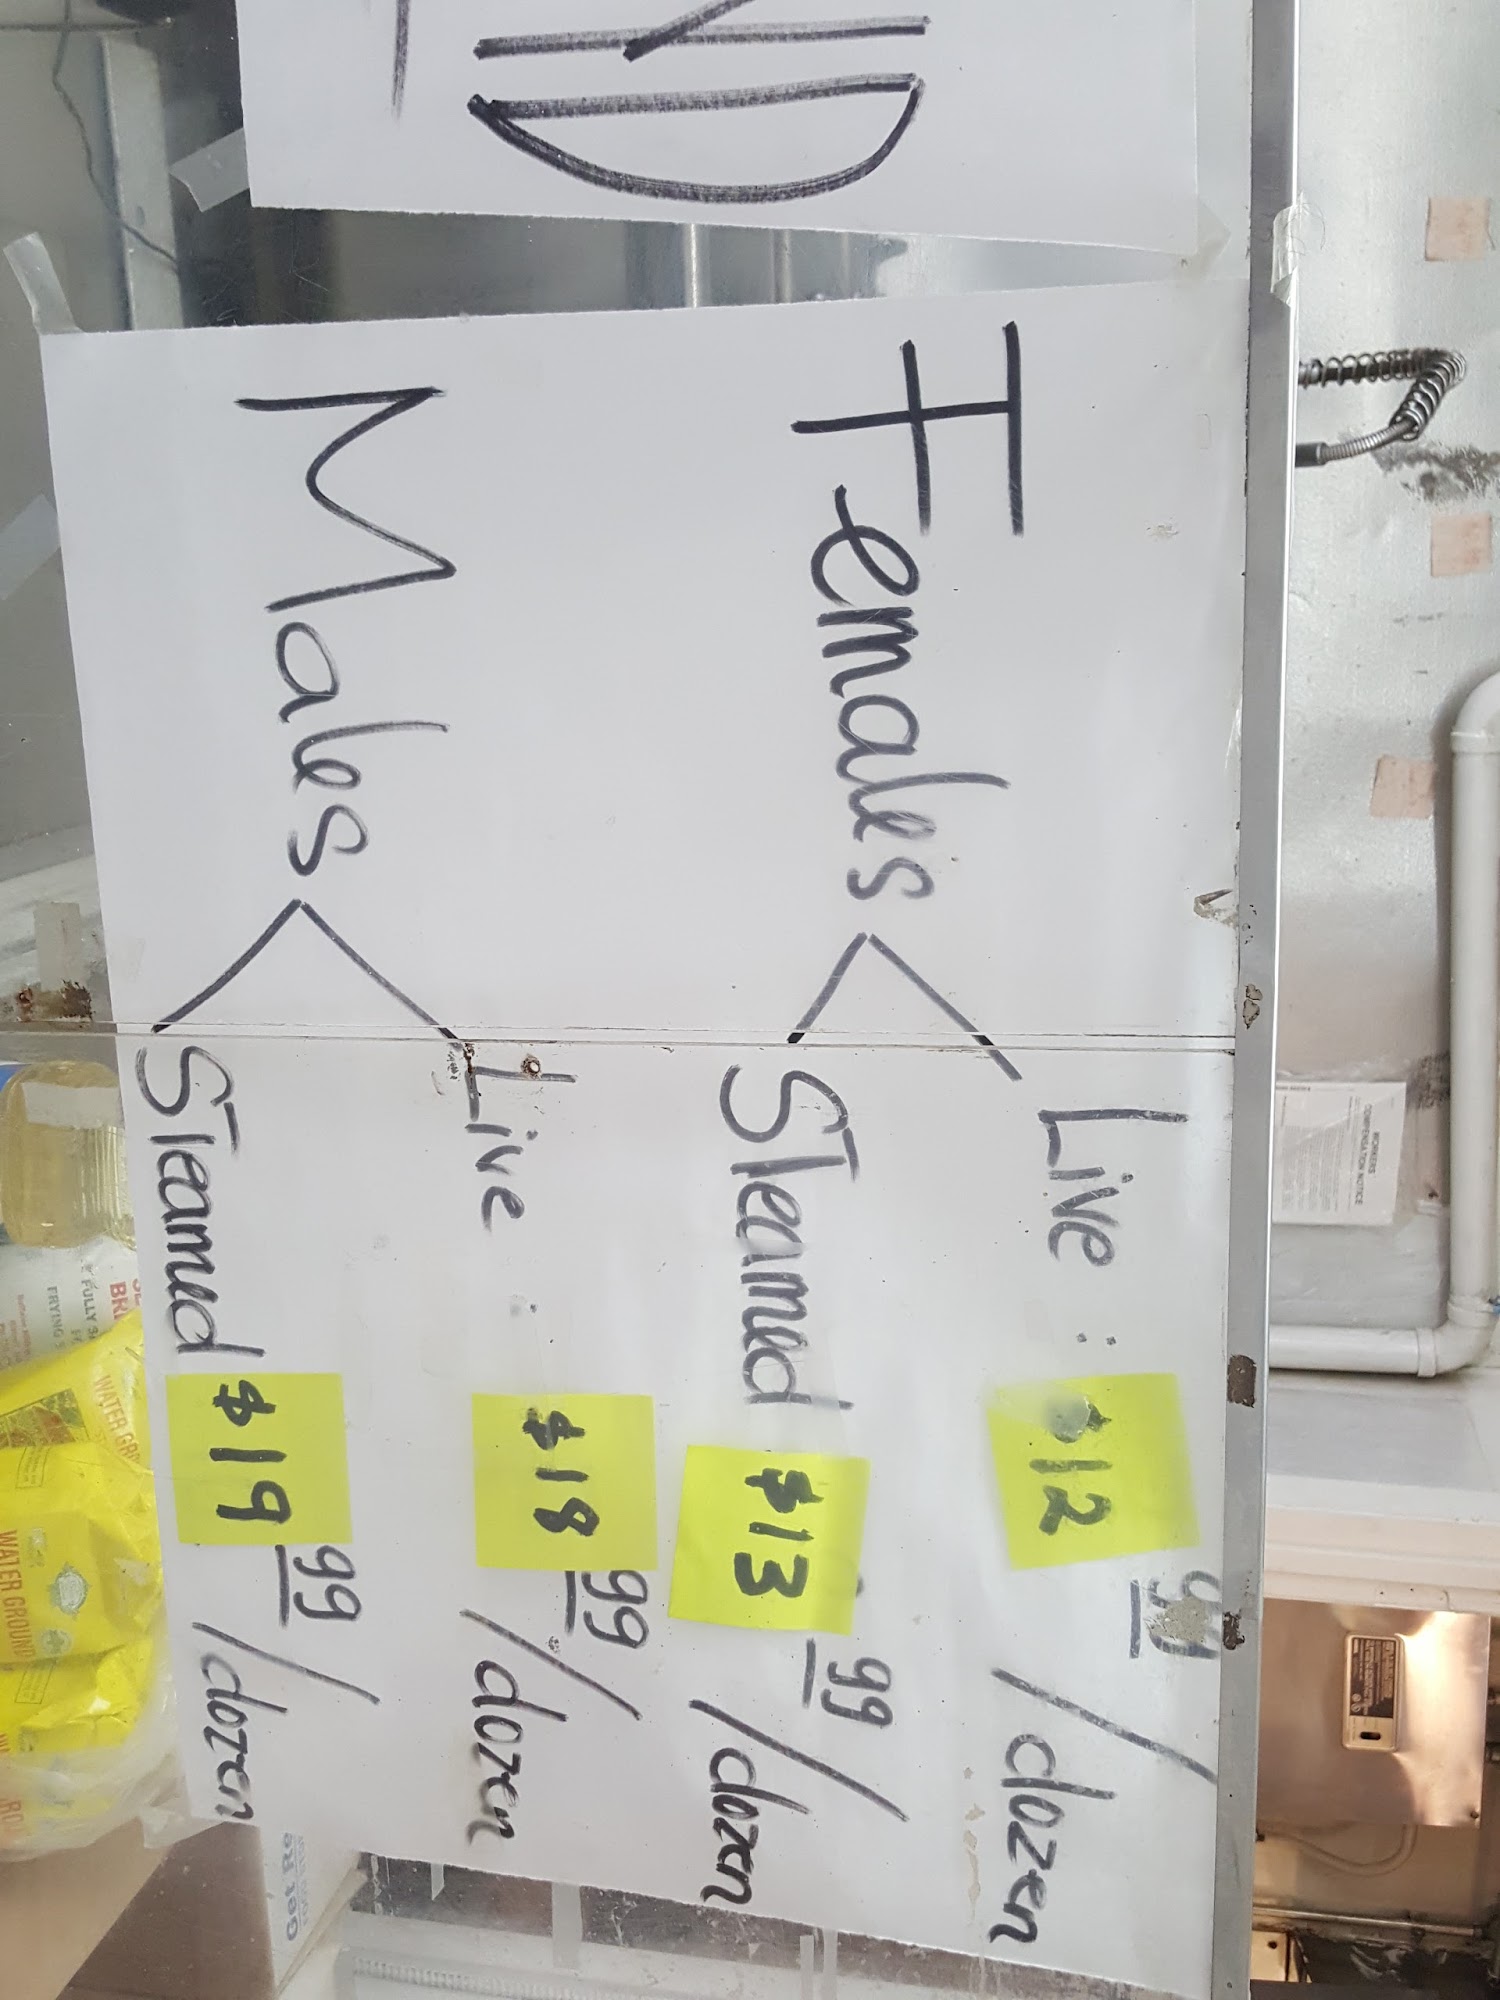 ND
Females < Live : $12 99 /dozen
Steamed $13 99 /dozen
Males < Live $18 99 /dozen
Steamed $19 99 /dozen
WORKERS
COMPENSATION NOTICE
FULLY
FRYING
WATER GRO
WATER GROUND
Get Re